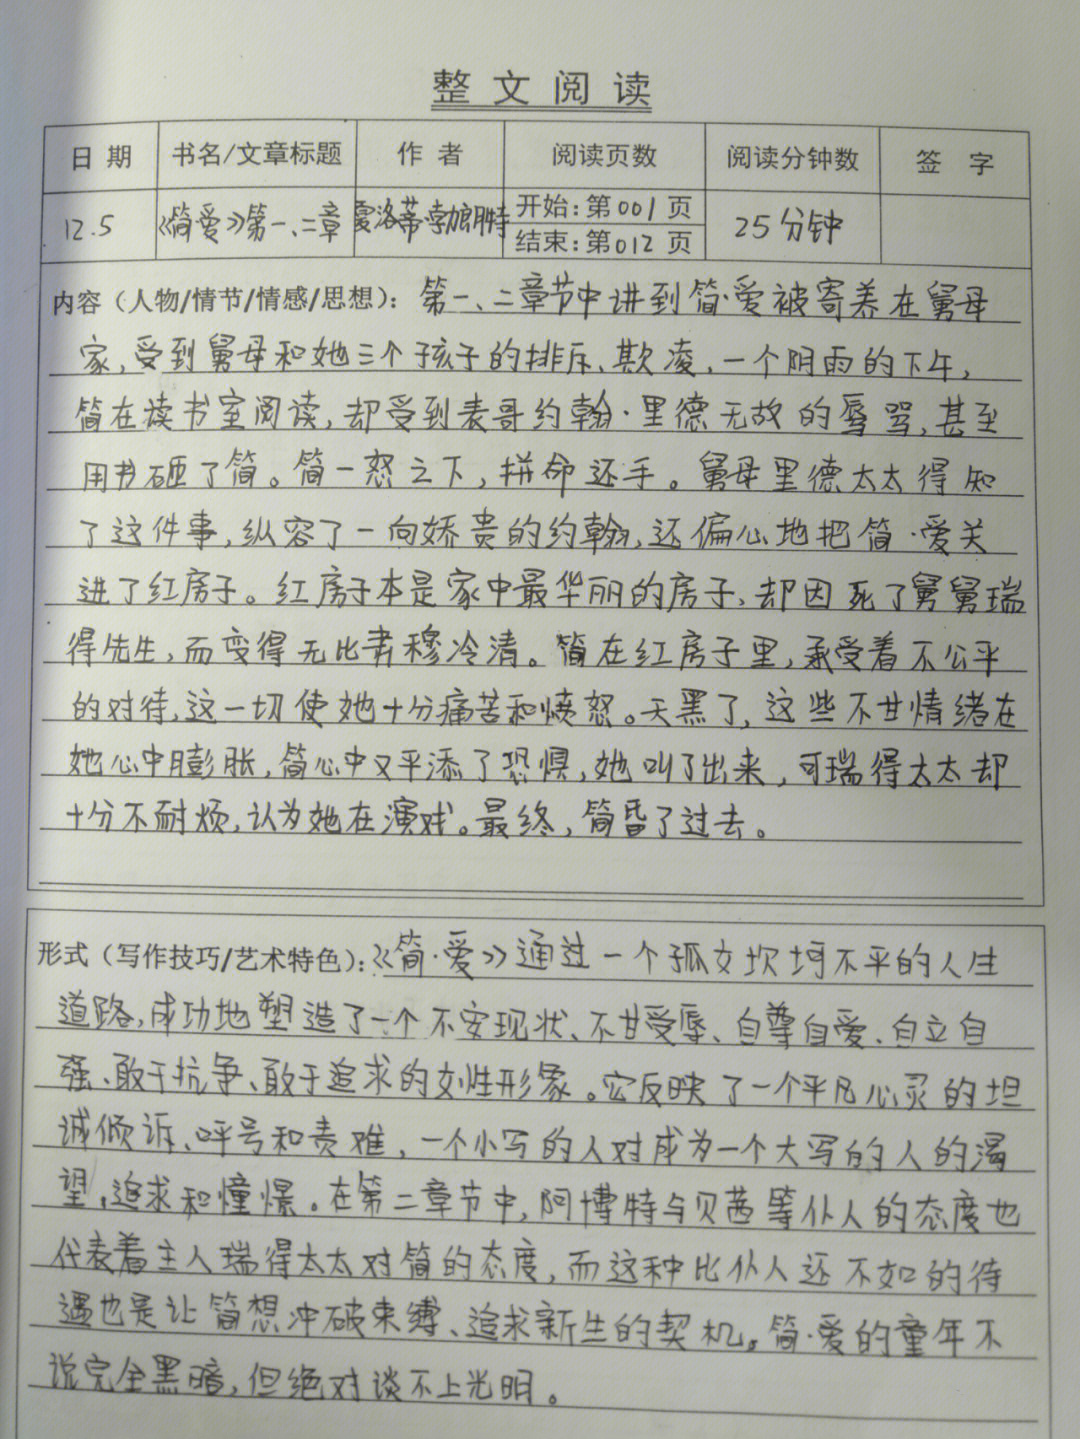 整文阅读
日期 书名/文章标题 作者 阅读页数 阅读分钟数 签字
12.5 《简爱》第一、二章 夏洛蒂·勃朗特 开始:第001页 25分钟
结束:第012页
内容(人物/情节/情感/思想): 第一、二章节中讲到简·爱被寄养在舅母
家,受到舅母和她三个孩子的排斥、欺凌,一个阴雨的下午,
简在读书室阅读,却受到表哥约翰·里德无故的辱骂,甚至
用书砸了简。简一怒之下,拼命还手。舅母里德太太得知
了这件事,纵容了一向娇贵的约翰,还偏心地把简·爱关
进了红房子。红房子本是家中最华丽的房子、却因死了舅舅瑞
得先生,而变得无比肃穆冷清。简在红房子里,承受着不公平
的对待,这一切使她十分痛苦和愤怒。天黑了,这些不甘情绪在
她心中膨胀,简心中又平添了恐惧,她叫了出来,可瑞得太太却
十分不耐烦,认为她在演戏。最终,简昏了过去。
形式(写作技巧/艺术特色):《简·爱》通过一个孤女坎坷不平的人生
道路,成功地塑造了一个不安现状、不甘受辱、自尊自爱、自立自
强、敢于抗争、敢于追求的女性形象。它反映了一个平凡心灵的坦
诚倾诉、呼号和责难,一个小写的人对成为一个大写的人的渴
望,追求和憧憬。在第二章节中,阿博特与贝茜等仆人的态度也
代表着主人瑞得太太对简的态度,而这种比仆人还不如的待
遇也是让简想冲破束缚、追求新生的契机。简·爱的童年不
说完全黑暗,但绝对谈不上光明。